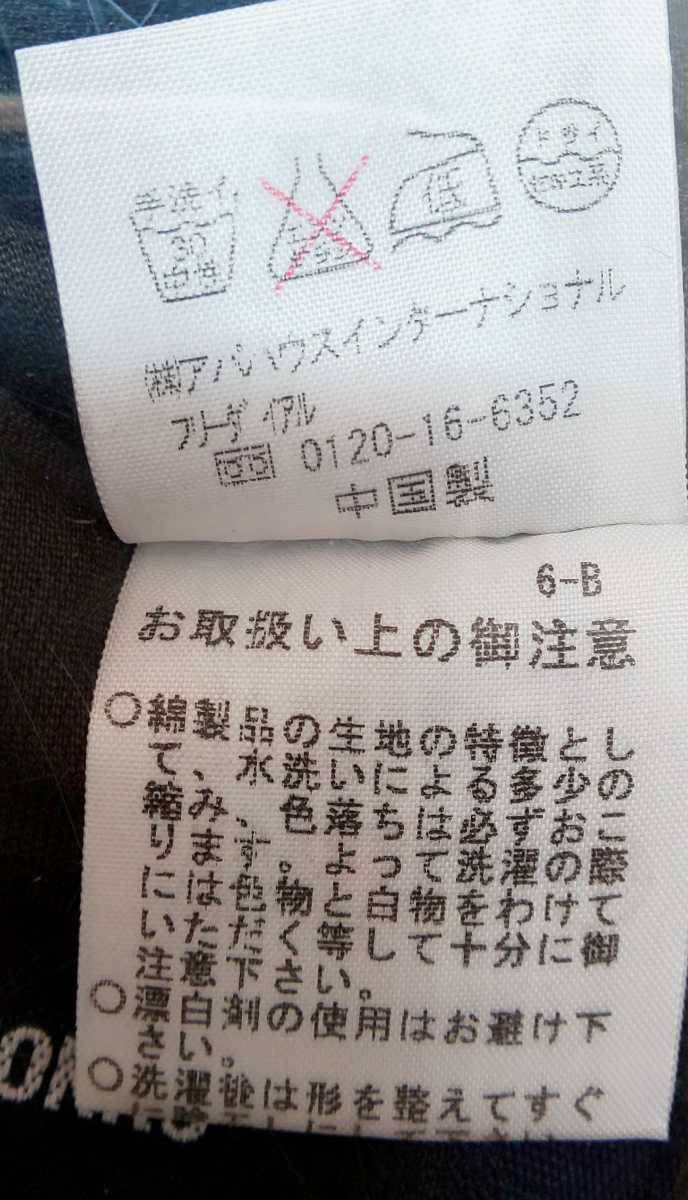 手洗イ
30
中性
低
ドライ
セキユ系
㈱アバハウスインターナショナル
フリーダイアル
0120-16-6352
中国製
6-B
お取扱い上の御注意
○綿製品の生地の特徴とし
て、水洗いによる多少の
縮み、色落ちは必ずおこ
ります。よって洗濯の際
には色物と白物をわけて
いただく等して十分に御
注意下さい。
○漂白剤の使用はお避け下
さい。
○洗濯後は形を整えてすぐ